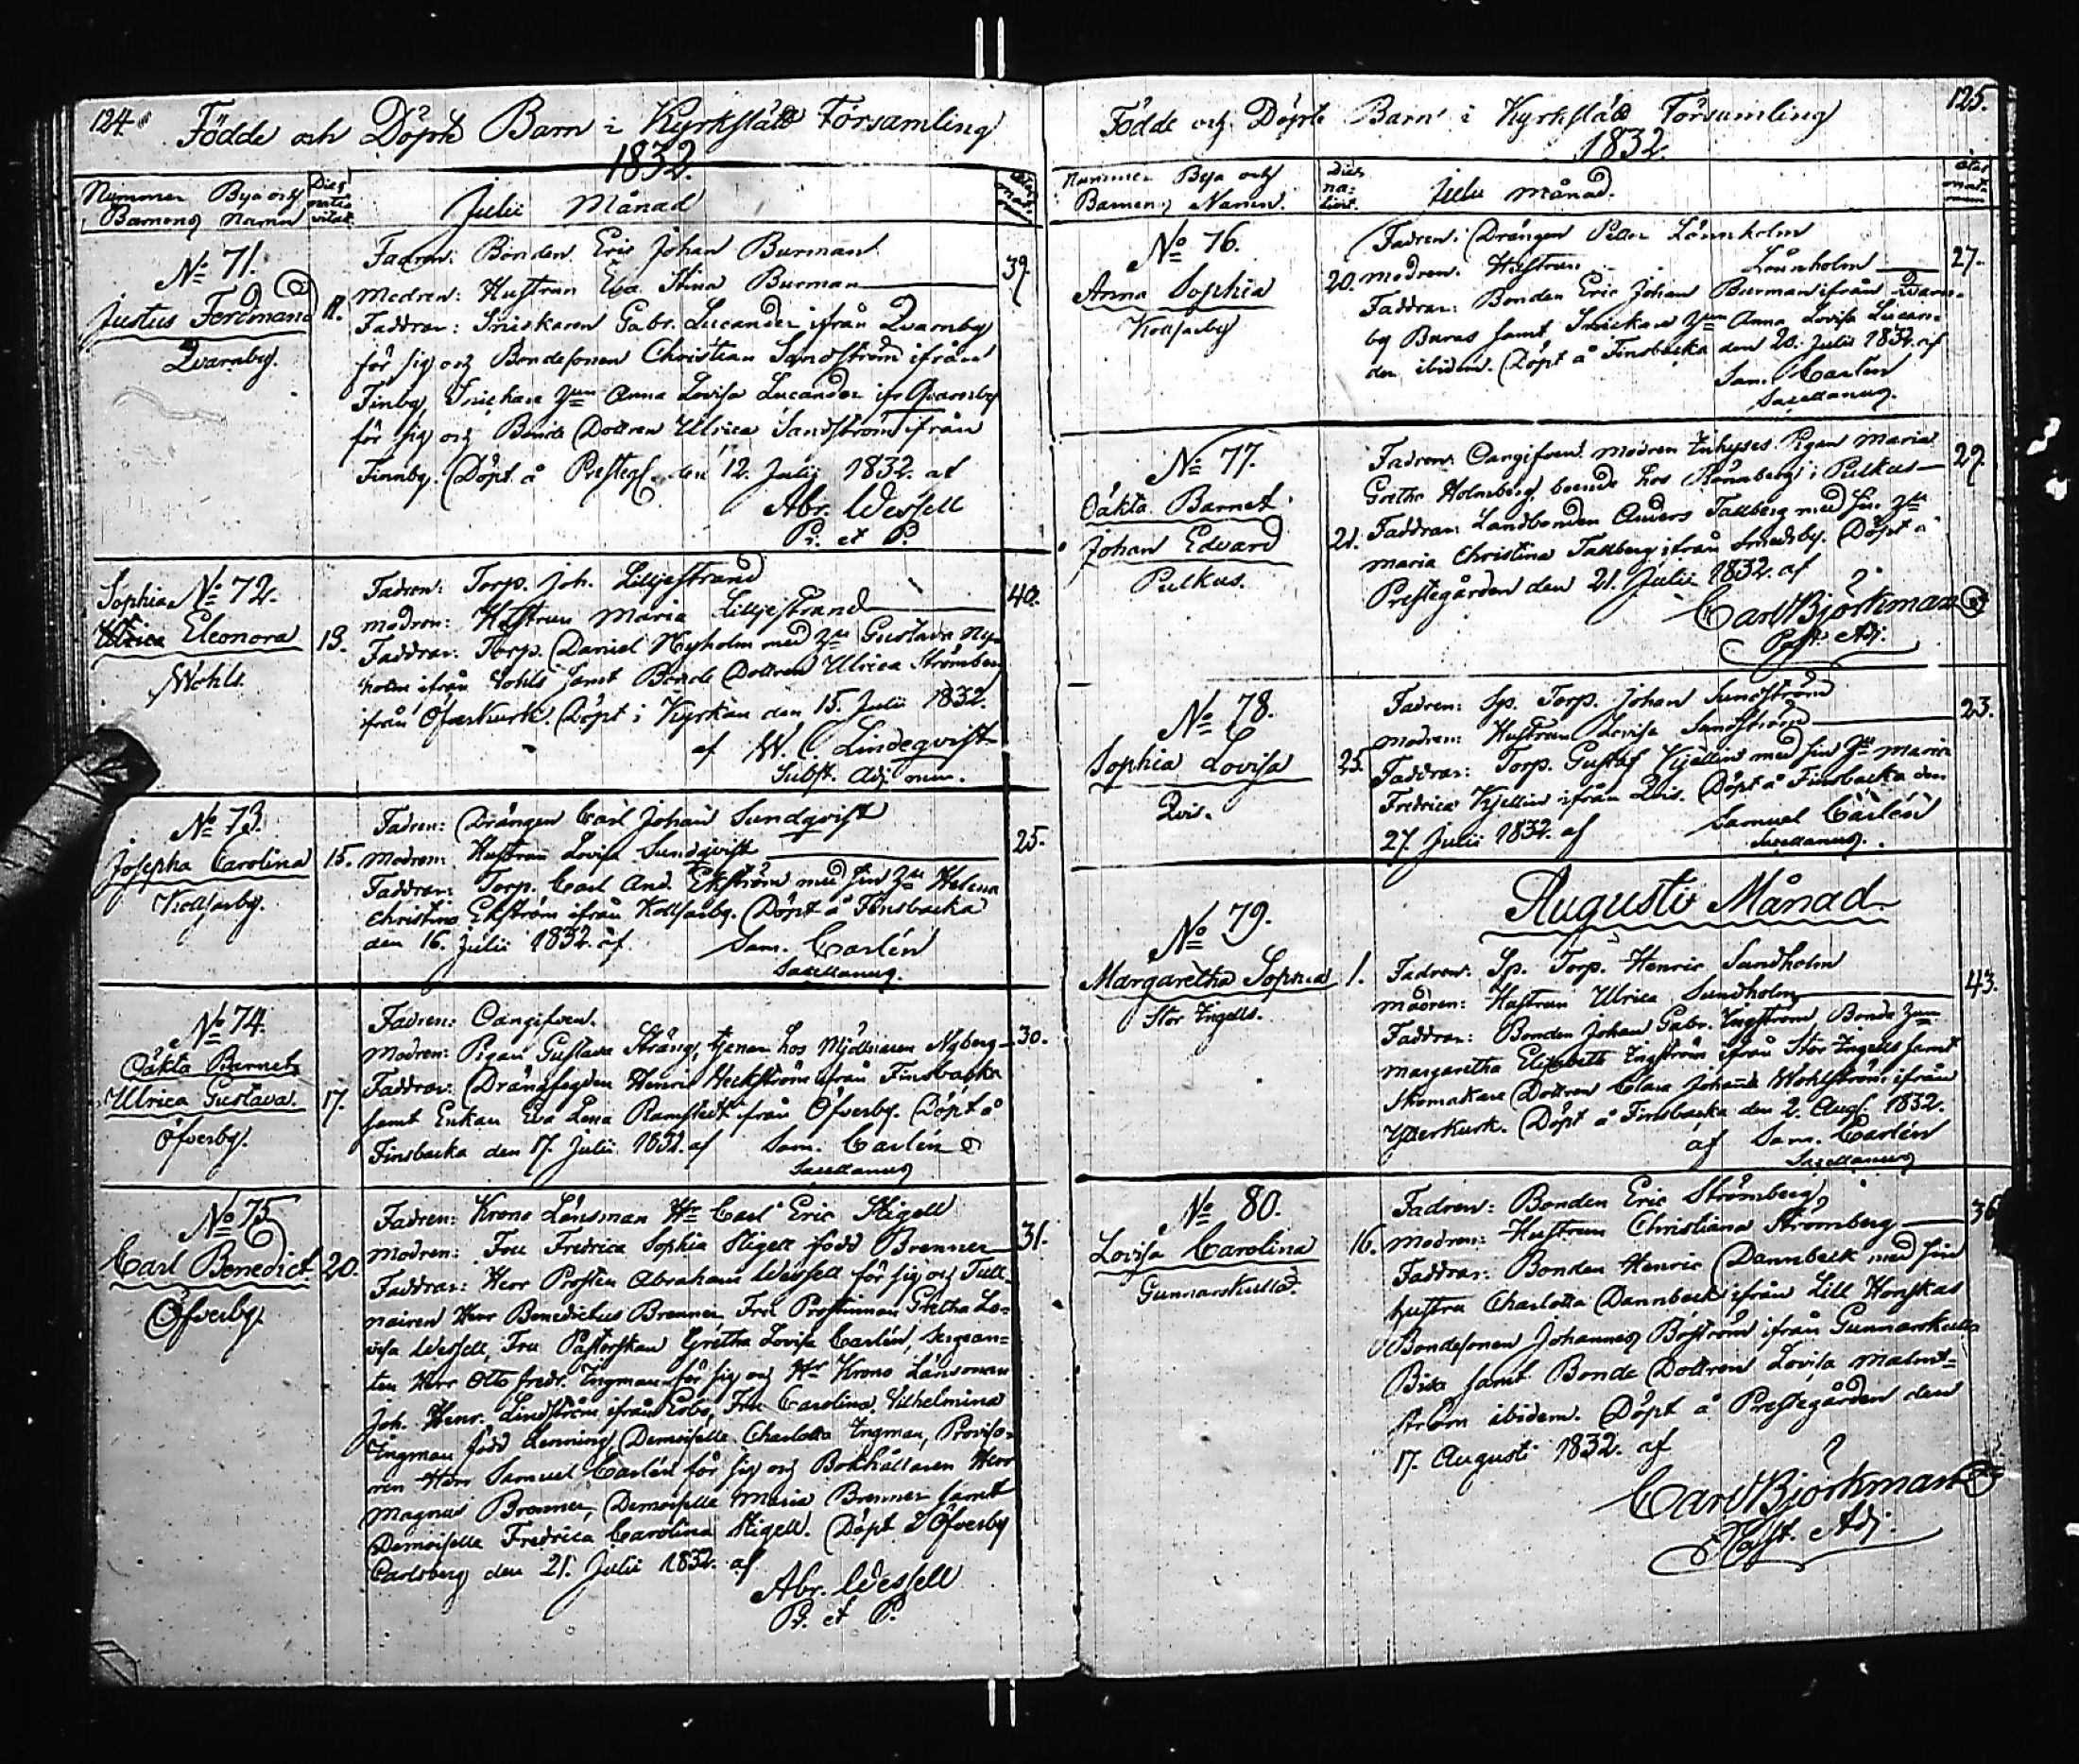 124.
Födde och Döpte Barn i Kyrkslätt Församling
1832.
Nummer Bya och
Barnens Namn
Dies
vitæ
Julii Månad
No 71.
Justus Ferdinand
Qvarnby.
11.
39.
Fadren: Bonden Eric Johan Burman
Modren: Hustrun Eva Stina Burman
Faddrar: Snickaren Gabr. Lucander ifrån Qvarnby
för sig och Bondesonen Christian Sandström ifrån
Finby, Snickare Anna Lovisa Lucander ifr Qvarnby
för sig och Bonde Dottren Ulrica Sandström ifrån
Finnby. Döpt å Presteg. den 12. Julij 1832. af
Abr. Wessell
P. et P.
Sophia No 72.
Ulrica Eleonora
Wohls.
13.
40.
Fadren: Torp. Joh. Liljestrand
modren: Hustrun Maria Liljestrand
Faddrar: Torp. Daniel Nyholm med Gustava Ny-
holm ifrån Wohls samt Bonde Dottren Ulrica Strömber
ifrån Öfverkurk. Döpt i Kyrkan den 15. Julii 1832.
af W. Lindeqvist
Subst. Adj.
No 73.
Josepha Carolina
Kollsarby.
15.
25.
Fadren: Drängen Carl Johan Sundqvist
Modren: Hustrun Lovisa Sundqvist
Faddrar: Torp. Carl And. Ekström med sin Helena
Christina Ekström ifrån Kollsarby. Döpt å Finsbacka
den 16. Julii 1832. af
Sam. Carlén
Sacellanus.
No 74.
Oäkta Barnet
Ulrica Gustava.
Öfverby.
17.
30.
Fadren: Oangifven.
Modren: Pigan Gustava Sträng, tjenar hos Mjölnaren Nyberg
Faddrar: Drängfogden Henric Heckström ifrån Finsbacka
samt Enkan Eva Lena Ramstedt från Öfverby. Döpt å
Finsbacka den 17. Julii 1832. af Sam. Carlén
Sacellanus
No 75
Carl Benedict
Öfverby.
20.
31.
Fadren: Krono Länsman Hr Carl Eric Stigell
Modren: Fru Fredrica Sophia Stigell född Brenner
Faddrar: Herr Prosten Abraham Wessell för sig och Tull-
Herr Benedictus Brenner, Fru Prostinnan Gretha Lo-
visa Wessell, Fru Pastorskan Gretha Lovisa Carlén, Sergean-
ten Herr Otto Fredr. Ingman för sig och Hr Krono Länsman
Joh. Henr. Lindström ifrån Esbo, Fru Carolina Vilhelmina
Ingman född Lenning, Demoiselle Charlotta Ingman, Proviso-
ren Herr Samuel Carlén för sig och Bokhållaren Herr
Magnus Brenner, Demoiselle Maria Brenner samt
Demoiselle Fredrica Carolina Stigell. Döpt å Öfverby
Carlsberg den 21. Julii 1832. af
Abr. Wessell
P. et P.
125.
Födde och Döpte Barn i Kyrkslätt Församling
1832.
Nummer Bya och
Barnens Namn.
Dies
na-
Julii månad.
No 76.
Anna Sophia
Kollsarby
20.
27.
Fadren: Drängen Petter Lönnholm
modren: Hustrun Lönnholm
Faddrar: Bonden Eric Johan Burman ifrån Qvarn-
by Buras samt Snickare Anna Lovisa Lucan-
der ibidem. Döpt å Finsbacka den 20. Julii 1832. af
Sam. Carlén
Sacellanus.
No 77.
Oäkta Barnet
Johan Edvard
Pulkus.
21.
29.
Fadren: Oangifven. Modren Inhyses Pigan Maria
Gretha Holmberg, boende hos Rönnberg i Pulkus
Faddrar: Landbonden Anders Tallberg med sin
Maria Christina Tallberg ifrån Smedsby. Döpt å
Prestegården den 21. Julii 1832. af
Carl Björkman
Past. Adj.
No 78.
Sophia Lovisa
Qvis.
25.
23.
Fadren: Sp. Torp. Johan Sundström
Modren: Hustrun Lovisa Sundström
Faddrar: Torp. Gustaf Kjellin med sin Maria
Fredrica Kjellin ifrån Qvis. Döpt å Finsbacka den
27. Julii 1832. af
Samuel Carlén
Sacellanus.
Augusti Månad.
No 79.
Margaretha Sophia
Stor Ingells.
1.
43.
Fadren: Sp. Torp. Henric Sundholm
Modren: Hustrun Ulrica Sundholm
Faddrar: Bonden Johan Gabr. Ingström, Bonde
Margaretha Elisabeth Ingström ifrån Stor Ingells samt
Skomakare Dottren Clara Johanna Wohlström ifrån
Ytterkurk. Döpt å Finsbacka den 2. Aug. 1832.
af Sam. Carlén
Sacellanus
No 80.
Lovisa Carolina
Gunnarskulla.
16.
36
Fadren: Bonden Eric Strömberg
Modren: Hustrun Christiana Strömberg
Faddrar: Bonden Henric Dannbeck med sin
hustru Charlotta Dannbeck ifrån Lill Honskas
Bondesonen Johannes Boström ifrån Gunnarskulla
samt Bonde Dottren Lovisa Malm-
ström ibidem. Döpt å Prestegården den
17. Augusti 1832. af
Carl Björkman
Past. Adj.